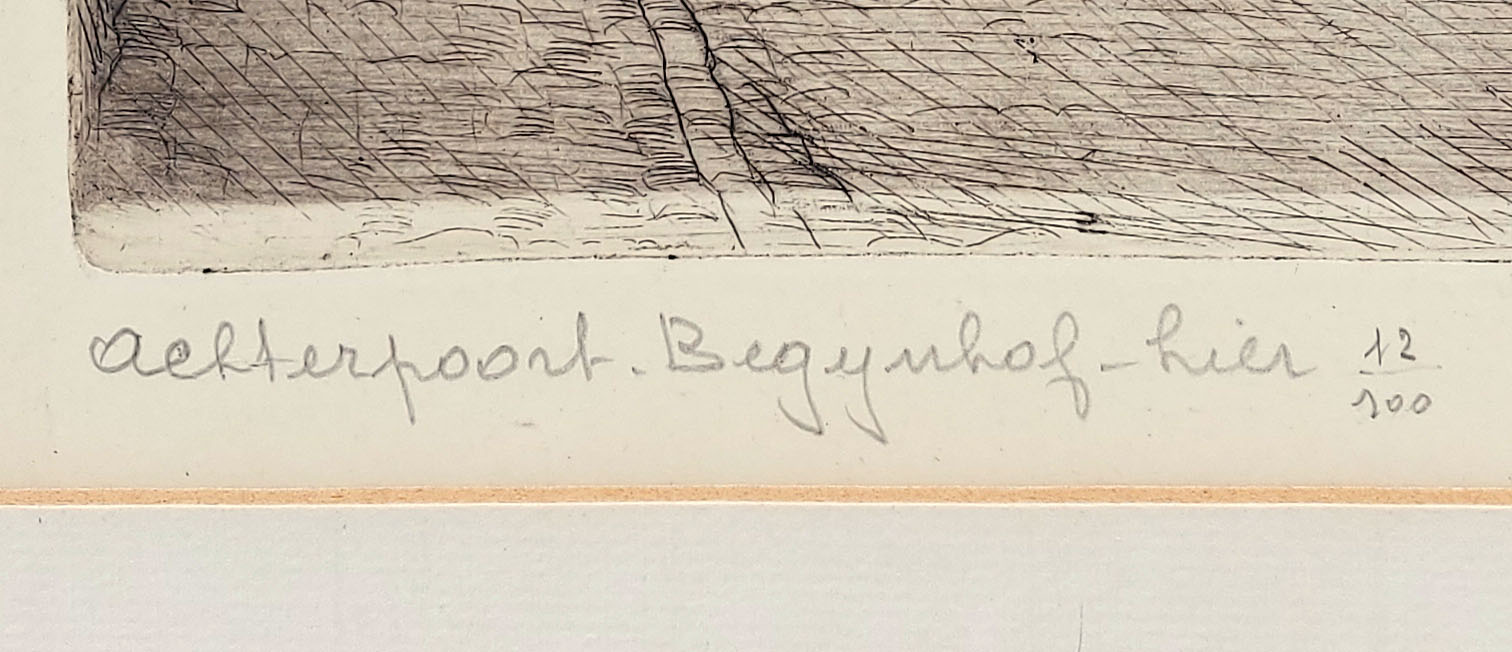 achterpoort. Begynhof-Lier 12/100